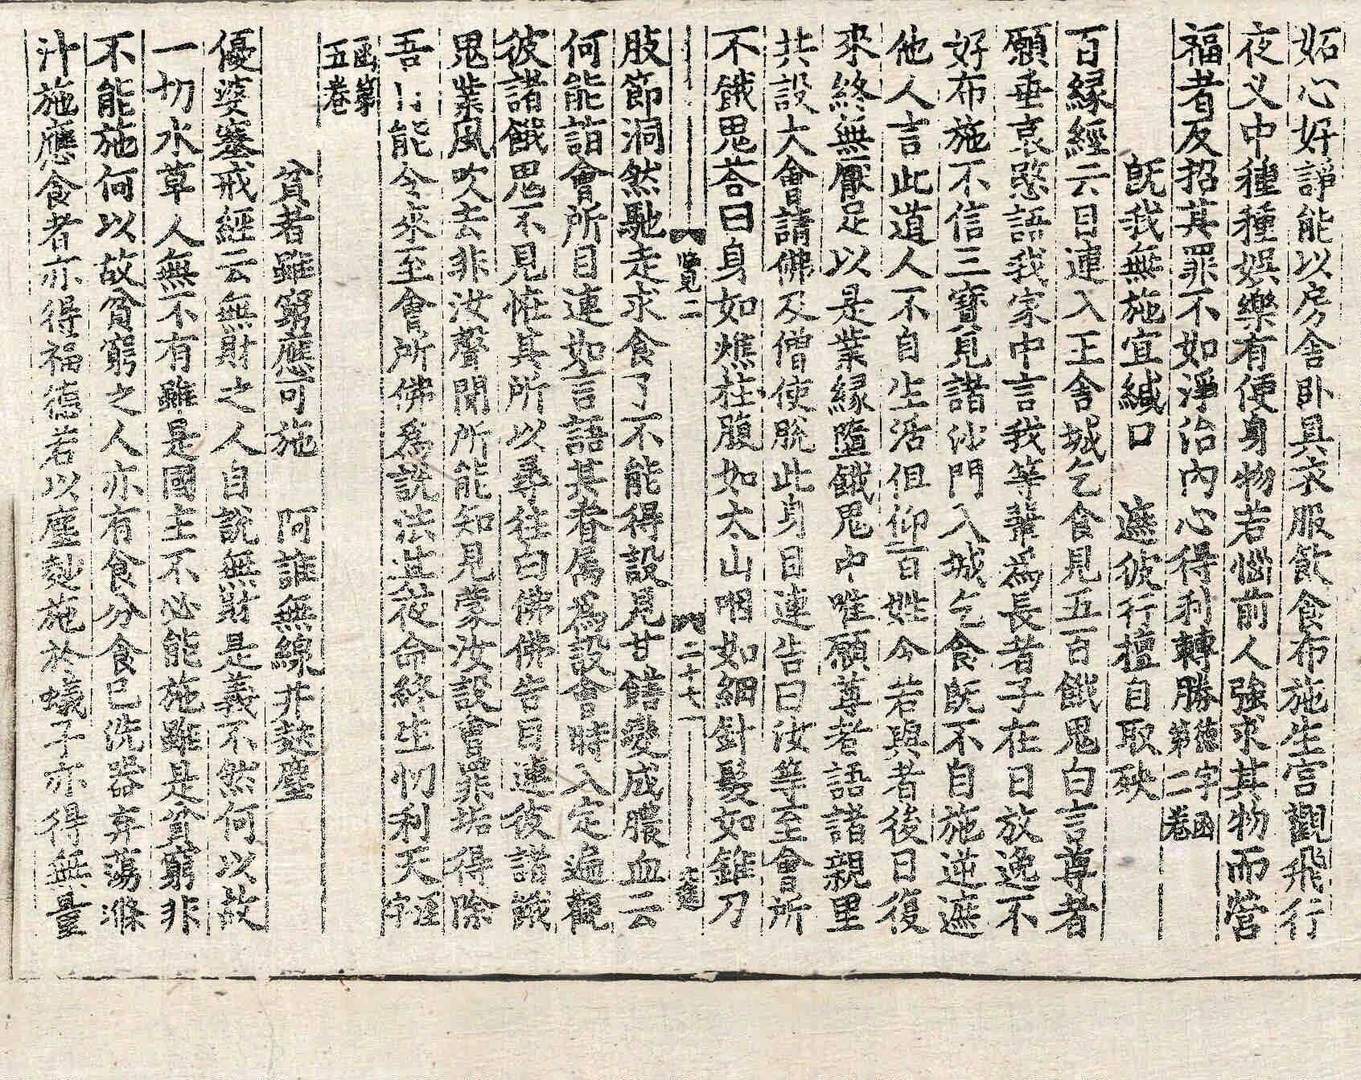 妬心好諍能以房舍卧具衣服飮食布施生宮觀飛行
夜义中種種娯樂有便身物若惱前人強求其物而營
福者反招其罪不如淨治内心得利轉勝德字函第二卷
旣我無施宜緘口　遮彼行檀自取殃
百縁經云目連入王舍城乞食見五百餓鬼白言尊者
願垂哀愍語我家中言我等軰爲長者子在日放逸不
好布施不信三寶見諸沙門入城乞食旣不自施逆遮
他人言此道人不自生活但仰百姓今若與者後日復
來終無厭足以是業縁墮餓鬼中唯願尊者語諸親里
共設大會請佛及僧使脫此身目連告曰汝等至會所
不餓鬼荅曰身如燋柱腹如太山咽如細針髮如錐刀
臨見二　二十七
肢節洞然馳走求食了不能得設見甘饍變成膿血云
何能詣會所目連如言語其眷属爲設會時入定遍觀
彼諸餓鬼不見恠其所以尋往白佛佛告目連彼諸餓
鬼業風吹去非汝聲聞所能知見蒙汝設會罪垢得除
吾自能令來至會所佛爲說法其夜命終生忉利天淫字
函第五卷
貧者雖窮應可施　阿誰無線幷麨塵
優婆塞戒經云無財之人自說無財是義不然何以故
一切水草人無不有雖是國主不必能施雖是貧窮非
不能施何以故貧窮之人亦有食分食已洗器弃蕩滌
汁施應食者亦得福德若以塵麨施於蟻子亦得無量